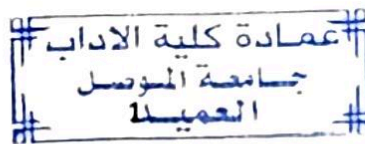 عمادة كلية الاداب
جامعة الموصل
العميد1